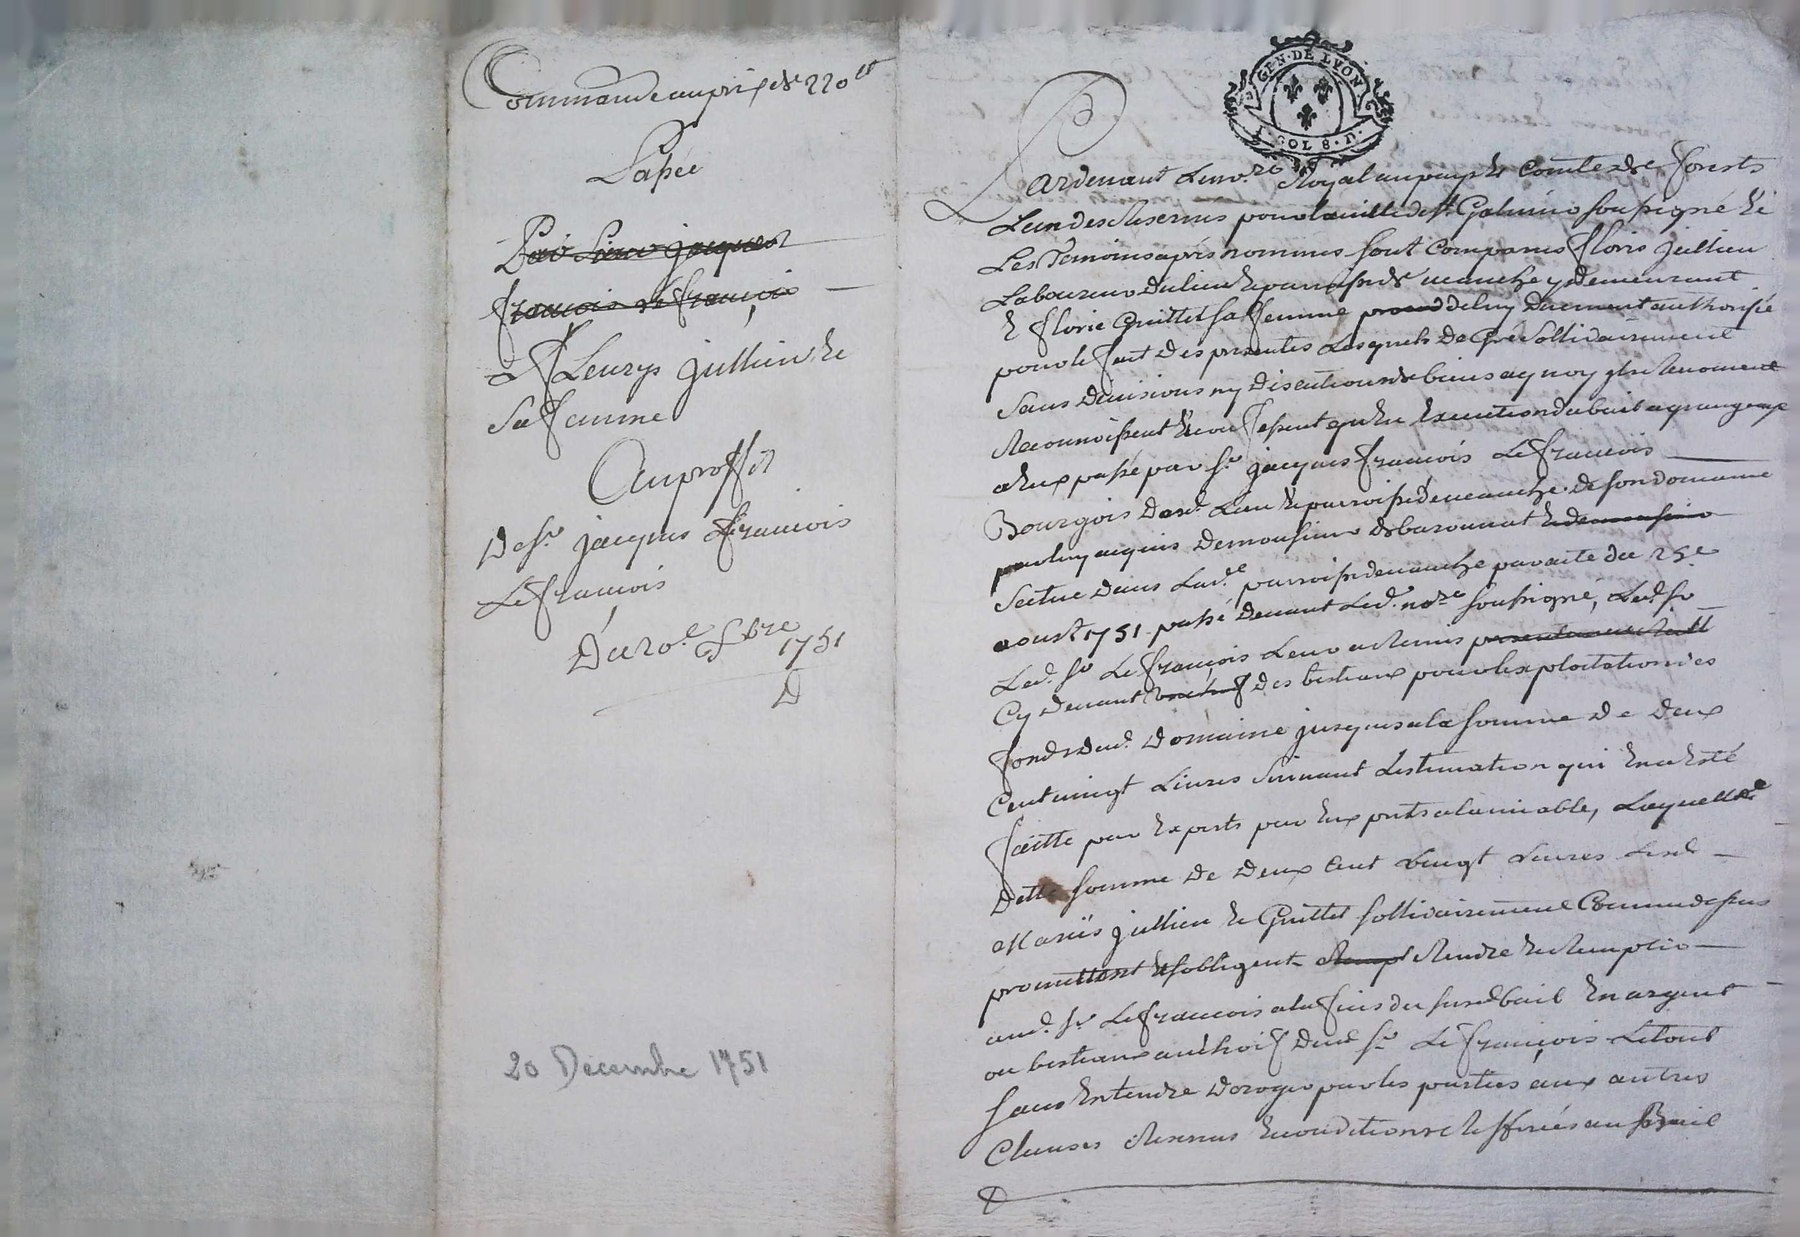 Commande au prix de 220 lt
Passée
Par Sieur Jacques
françois le françois
a fleurys jullien et
Sa femme
Au proffit
De sr jacques françois
Le françois
Du 20e Xbre
1751
D
20 Décembre 1751
GEN. DE LYON
SOL 8. D.
Pardevant Le no.re Royal au pays et Comté de forests
L'un des Reservés pour la ville de st Galmier soussigné Et
Les Temoins après nommés sont comparus floris jullien
Laboureur du lieu et parroisse de veauche y demeurant
Et florie Guillet sa femme de luy duement authorisée
pour le fait des presentes Lesquels de Gré Sollidairement
Sans divisions ny discution de biens
Reconnoissent Et Confessent qu'en Execution du bail a grangeage
a Eux passé par sr jacques françois Le françois
Bourgois dud. Lieu Et parroisse de veauche de son domaine
par luy acquis de monsieur de baronnat
Scitue dans Lad.e parroisse de veauche par acte du 25e
aoust 1751 passé devant Led. no.re soussigné, Led. sr
Led. sr Le françois Leur a Remis
Cy devant des bestiaux pour l'exploitation des
fonds dud. Domaine jusques a la somme de deux
Cent vingt Livres Suivant L'estimation qui En a Esté
faitte par Experts par Eux pris a l'amiable, Laquelle
dette somme de Deux Cent Vingt Livres Lesd.
Mariés jullien Et Guillet sollidairement Comme dessus
promettent Et s'obligent Rendre Et Remplir
aud. sr Le françois a la fin du susd. bail En argent
ou bestiaux au choix dud. sr Le françois Le tout
sans Entendre deroger par les parties aux autres
Clauses Reserves Et conditions Referées au Bail